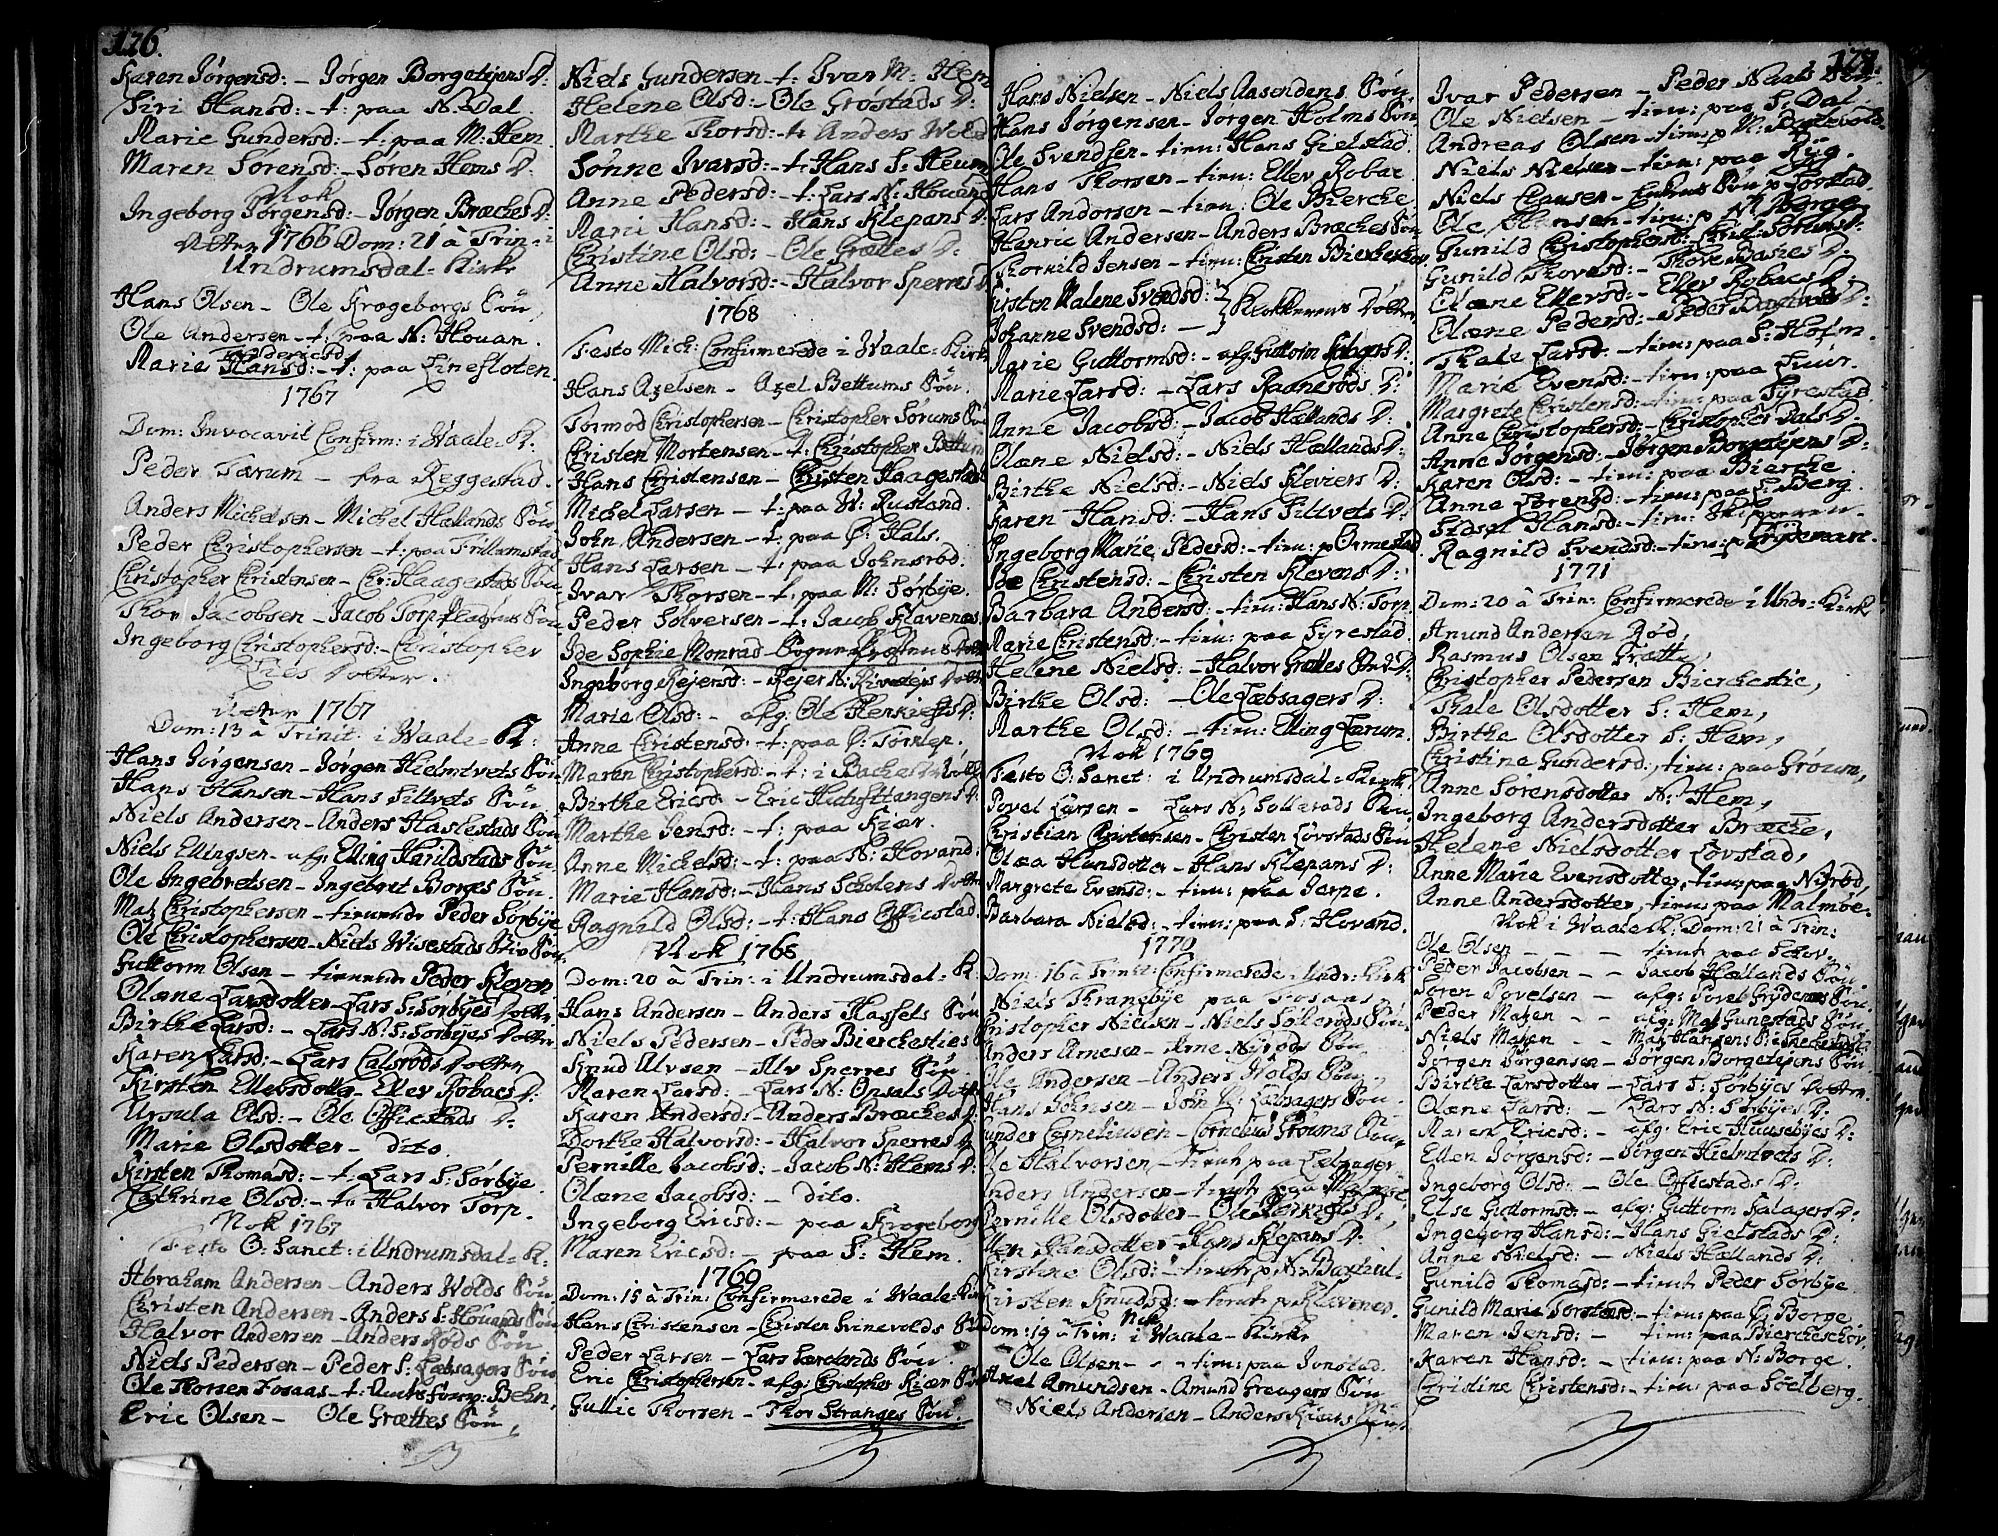 126.
Karen Jørgensd: – Jørgen Borgetejens D:
Siri Hansd: – t: paa N. Dal.
Marie Gundersd: – t: paa M: Hem.
Maren Sørensd: – Søren Hems D:
Nok
Ingeborg Jørgensd: – Jørgen Bræches D:
1766 Dom: 21 à Trin: i
Undrumsdal: Kirke
Hans Olsen – Ole Krogeborgs Søn,
Ole Andersen – t: paa N: Hovan.
Marie Hansd: – t: paa Linefloten.
1767
Dom: Invocavit Confirm: i Waale: K:
Peder Færum – fra Reggestad.
Anders Michelsen – Michel Hællands Søn
Peder Christophersen – t: paa Trillamstad
Christopher Christensen – Chr: Haagestads Søn
Thor Jacobsen – Jacob Torp Søn
Ingeborg Christophersd: – Christopher
Lies Dotter.
1767
Dom: 13 à Trinit: i Waale: K:
Hans Jørgensen – Jørgen Hielmtvets Søn
Hans Hansen – Hans Filtvets Søn
Niels Andersen – Anders Haslestads Søn
Niels Ellingsen – afg: Elling Harildstads Søn
Ole Ingebretsen – Ingebret Borges Søn.
Maz Christophersen – tienende Peder Sørbye
Ole Christophersen – Niels Wisestads Stiv Søn
Guttorm Olsen – tienende Peder Kleven
Olæne Larsdotter – Lars S: Sørbyes Dotter
Birthe Larsd: – Lars N: S: Sørbyes Dotter
Karen Larsd: – Lars Calsrøds Dotter
Kirsten Ellevsdotter – Ellev Robacs D:
Ursula Olsd: – Ole Offiestads D:
Marie Olsdotter – dito.
Kirsten Thomasd: – t: Lars S: Sørbye.
Cathrine Olsd: – t: Halvor Torp.
Nok 1767
Festo O: Sanct: i Undrumsdal: K:
Abraham Andersen – Anders Wolds Søn
Christen Andersen – Anders S: Hovands Søn
Halvor Andersen – Anders Røds Søn
Niels Pedersen – Peder S: Læbsagers Søn
Ole Thorsen Fosaas – t: Behn,
Eric Olsen – Ole Grættes Søn,
Niels Gundersen – t: Ivar M: Hem
Helene Olsd: – Ole Grøstads D:
Marthe Thorsd: – t: Anders Wold
Sønne Ivarsd: – t: Hans S: Heum
Anne Pedersd: – t: Lars N: Hovend
Marie Hansd: – Hans Klepans D:
Christine Olsd: – Ole Grættes D:
Anne Halvorsd: – Halvor Sperres D:
1768
Festo Mich: Confirmerede i Waale: Kirk
Hans Axelsen – Axel Bettums Søn.
Tormod Christophersen – Christopher Sørums Søn
Christen Mortensen – t: Christopher Bettum
Hans Christensen – Christen Haagestads
Michel Larsen – t: paa W: Rusland.
John Andersen – t: paa Ø: Hals.
Hans Larsen – t: paa Johnsrød.
Ivar Thorsen – t: paa M: Sørbye.
Peder Sølversen – t: Jacob Klavenes.
Ide Sophie Monrad – Sogne Dotter
Ingeborg Rejersd: – Rejer N: Dotter
Marie Olsd: – afg: Ole D:
Anne Christensd: – t: paa
Maren Christophersd: – t: i
Birthe Ericsd – Eric D:
Marthe Jensd: – t: paa Kiær.
Anne Michelsd: – t: paa N: Hovand.
Marie Hansd: – Hans Scholens Dotter
Ragnald Olsd: – t: Hans Offiestad.
Nok 1768
Dom: 20 à Trin: i Undrumsdal: K.
Hans Andersen – Anders Hassels Søn
Niels Pedersen – Peder Bierchesties S
Knud Alvsen – Alv Sperres Søn.
Maren Larsd: – Lars N: Onsals Dotter
Karen Andersd: – Anders Bræches D:
Dorthe Halvorsd: – Halvor Sperres D:
Pernille Jacobsd: – Jacob N: Hems D:
Olæne Jacobsd: – dito.
Ingeborg Ericsd: – paa Krogeborg
Maren Ericsd: – paa S: Hem.
1769
Dom: 15 à Trin: Confirmerede i Waale:
Hans Christensen – Christen Svinevolds Søn
Peder Larsen – Lars Særelands Søn.
Eric Christophersen – afg: Christopher Kiær Søn
Gullic Thorsen – Thor Stranges Søn.
Hans Nielsen – Niels Aasendens Søn.
Hans Jørgensen – Jørgen Holms Søn
Ole Svendsen – tien: Hans Gielstad.
Hans Thorsen – tien: Ellev Robac
Lars Andersen – tien: Ole Bierche
Hanric Andersen – Anders Bræches Søn
Thorvild Jensen – tien: Christen Bierkeskov
Kirsten Malene Svendsd: } Klokkerens Døttre
Johanne Svendsd: – }
Marie Guttormsd: – afg: Guttorm D:
Marie Larsd: – Lars Raanerøds D:
Anne Jacobsd: – Jacob Hællands D:
Olæne Nielsd: – Niels Hællands D:
Birthe Nielsd: – Niels Kleviers D:
Karen Hansd: – Hans Filtvets D:
Ingeborg Marie Pedersd: – tien: p Ormestad
Ide Christensd: – Christen Klevens D:
Barbara Andersd: – tien: Hans N: Torp.
Marie Christensd: – tien: paa Syrestad.
Helene Nielsd: – Halvor Grættes D:
Birthe Olsd: – Ole Læbsagers D:
Marthe Olsd: – tien: Elling Lærum.
Nok 1769
Festo O: Sanct: i Undrumsdal: Kirk:
Povel Larsen – Lars N: Sollerøds Søn
Christian Christensen – Christen Løvstads Søn
Olæa Hansdotter – Hans Klepans D:
Margrete Evensd: – tien: paa Jerpe.
Barbara Nielsd: – tien: paa S: Hovand.
1770
Dom: 16 à Trinit: Confirmerede i Undr: Kirk
Niels Thranebye paa Fosans.
Christopher Nielsen – Niels Sollerøds Søn.
Anders Arnesen – Arne Nyrøds Søn.
Ole Andersen – Anders Wolds Søn,
Hans Johnsen – John N: Læbsagers Søn.
Gunder Corneliusen – Cornelius Grouns Søn
Ole Halvorsen – tient: paa Læbsager
Anders Andersen – tient: paa Malmøe
Pernille Olsdotter – Ole D:
Ellen Hansdotter – Hans Klepans D:
Kirstine Olsd: – tient: p N:
Kirsten Knudsd: – tient: p Klavenes.
Nok
Dom: 19 à Trin: i Waale: Kirke
Ole Olsen – – tien: paa Jonstad.
Axel Amundsen – Amund Greagers Søn
Niels Andersen – Anders Søn
127.
Ivar Pedersen – Peder
Ole Nielsen – tien: paa S: Dal.
Andreas Olsen – tien: p M:
Niels Nielsen – tien: paa Ryg.
Niels Clausen – Søn p
Ole Hansen – tien: p N: Berge
Gunild Christophersd: Christ: Sørums D:
Gunild Thoresd: – Thore D:
Olæne Ellevsd: – Ellev Robacs D:
Olæne Pedersd: – Peder D:
Thale Larsd: – tien: paa S: Holm.
Marie Evensd: – tien: paa
Margrete Christensd: – tien: paa Syrestad
Anne Christophersd: – Christopher Dals D:
Anne Jørgensd: – Jørgen Borgetejens D:
Karen Olsd: – tien: paa Bierche.
Anne Sørensd: – tien: paa S: Berg.
Sidsel Hansd: – tien:
Ragnild Svendsd: – tien: p
1771
Dom: 20 à Trin: Confirmerede i Undr: Kirk
Anund Andersen Rød,
Rasmus Olsen Grætte,
Christopher Pedersen Bierchestie,
Thale Olsdotter S: Hem,
Birthe Olsdotter S: Hem,
Christine Gundersd: tien: paa Groum,
Anne Sørensdotter N: Hem,
Ingeborg Andersdotter Bræche,
Helene Nielsdotter Løvstad,
Anne Marie Evensdotter, tien: paa Nyrød,
Anne Andersdotter, tien: paa Malmøe.
Nok i Waale K: Dom: 21 à Trin:
Ole Olsen – – – tient paa Schov.
Peder Jacobsen – – Jacob Hællands Søn
Søren Povelsen – afg: Povel Søn
Peder Mazen – – afg: Maz Gunestads Søn
Niels Mazen – – Maz Hangens
Jørgen Jørgensen – Jørgen Borgetejens Søn
Birthe Larsdotter – Lars S: Sørbyes Dotter.
Olæne Larsd: – Lars N: Sørbyes D:
Maren Ericsd: – afg: Eric Huusebyes D:
Ellen Jørgensd: – Jørgen Hielmtvets D:
Ingeborg Olsd: – Ole Offiestads D:
Else Guttormsd: – afg: Guttorm D:
Ingeborg Hansd: – Hans Gielstads D:
Anne Nielsd: – Niels Hællands D:
Gunild Thomasd: – tient Peder Sørbye
Gunild Marie Torstensd: – tien: paa Ø: Borge
Maren Jensd: – tien: paa Biercheschov.
Karen Hansd: – tien: paa N: Borge.
Christine Christensd: – tien: paa Solberg.